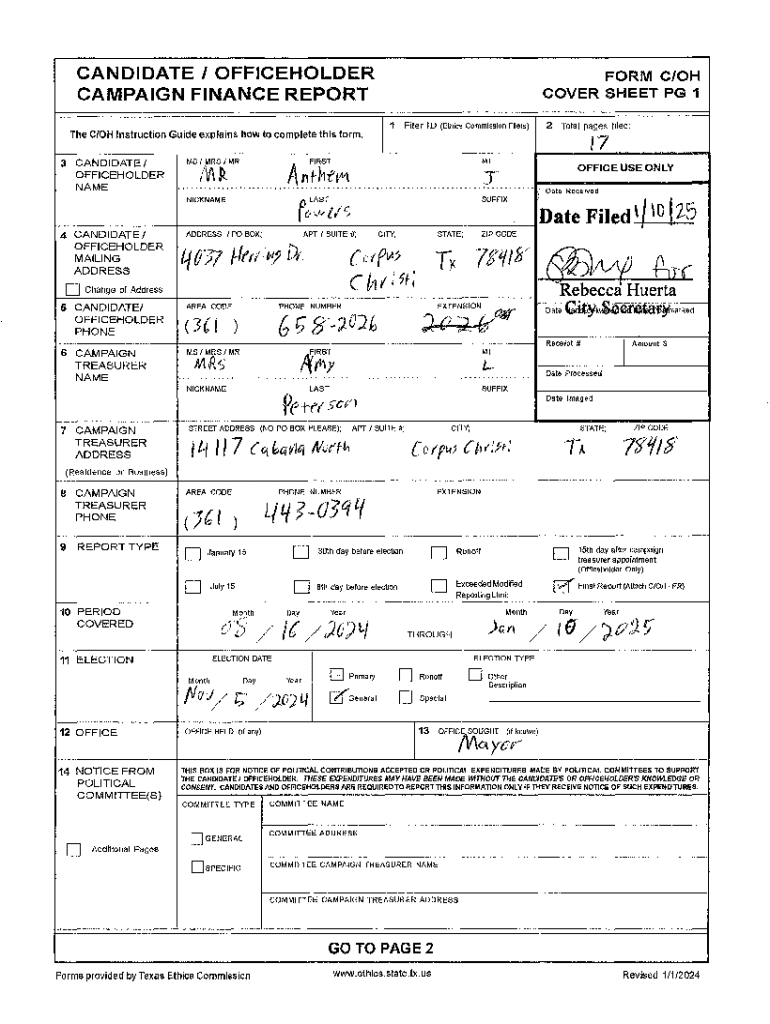 CANDIDATE / OFFICEHOLDER
CAMPAIGN FINANCE REPORT
FORM C/OH
COVER SHEET PG 1
The C/OH Instruction Guide explains how to complete this form.
1 Filer ID (Ethics Commission Filers)
2 Total pages filed:
17
3 CANDIDATE / OFFICEHOLDER NAME
MS / MRS / MR FIRST MI
MR Anthem J
NICKNAME LAST SUFFIX
Powers
OFFICE USE ONLY
Date Received
Date Filed 1/10/25
Rebecca Huerta
City Secretary
4 CANDIDATE / OFFICEHOLDER MAILING ADDRESS
Change of Address
ADDRESS / PO BOX; APT / SUITE #; CITY; STATE; ZIP CODE
4037 Herring Dr. Corpus Christi Tx 78418
5 CANDIDATE/ OFFICEHOLDER PHONE
AREA CODE PHONE NUMBER EXTENSION
(361) 658-2026 2026
Receipt # Amount $
Date Processed
Date Imaged
6 CAMPAIGN TREASURER NAME
MS / MRS / MR FIRST MI
MRS Amy L
NICKNAME LAST SUFFIX
Peterson
7 CAMPAIGN TREASURER ADDRESS
(Residence or Business)
STREET ADDRESS (NO PO BOX PLEASE); APT / SUITE #; CITY; STATE; ZIP CODE
14117 Cabana North Corpus Christi Tx 78418
8 CAMPAIGN TREASURER PHONE
AREA CODE PHONE NUMBER EXTENSION
(361) 443-0394
9 REPORT TYPE
January 15 30th day before election Runoff 15th day after campaign treasurer appointment (Officeholder Only)
July 15 8th day before election Exceeded Modified Reporting Limit Final Report (Attach C/OH - FR)
10 PERIOD COVERED
Month Day Year Month Day Year
08 / 16 / 2024 THROUGH Jan / 10 / 2025
11 ELECTION
ELECTION DATE ELECTION TYPE
Month Day Year
Nov / 5 / 2024
Primary Runoff Other Description
General Special
12 OFFICE
OFFICE HELD (if any)
13 OFFICE SOUGHT (if known)
Mayor
14 NOTICE FROM POLITICAL COMMITTEE(S)
Additional Pages
THIS BOX IS FOR NOTICE OF POLITICAL CONTRIBUTIONS ACCEPTED OR POLITICAL EXPENDITURES MADE BY POLITICAL COMMITTEES TO SUPPORT
THE CANDIDATE / OFFICEHOLDER. THESE EXPENDITURES MAY HAVE BEEN MADE WITHOUT THE CANDIDATE'S OR OFFICEHOLDER'S KNOWLEDGE OR
CONSENT. CANDIDATES AND OFFICEHOLDERS ARE REQUIRED TO REPORT THIS INFORMATION ONLY IF THEY RECEIVE NOTICE OF SUCH EXPENDITURES.
COMMITTEE TYPE COMMITTEE NAME
GENERAL
COMMITTEE ADDRESS
SPECIFIC
COMMITTEE CAMPAIGN TREASURER NAME
COMMITTEE CAMPAIGN TREASURER ADDRESS
GO TO PAGE 2
Forms provided by Texas Ethics Commission www.ethics.state.tx.us Revised 1/1/2024